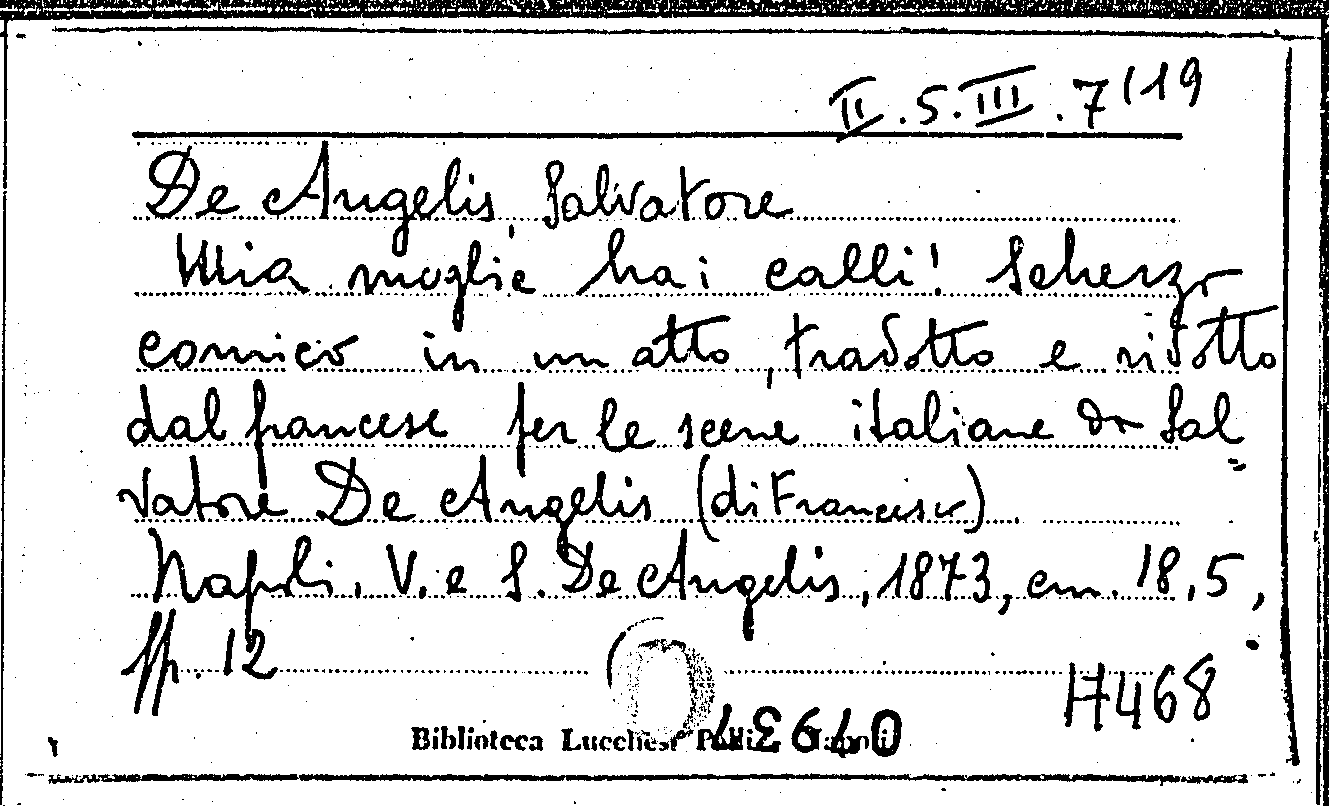 II.5.III.7/19
De Angelis, Salvatore
Mia moglie ha i calli! Scherzo
comico in un atto, tradotto e ridotto
dal francese per le scene italiane da Sal=
vatore De Angelis (di Francesco).
Napoli, V. e S. De Angelis, 1873, cm. 18,5,
pp. 12
H468
Biblioteca Lucchesi Palli - Napoli